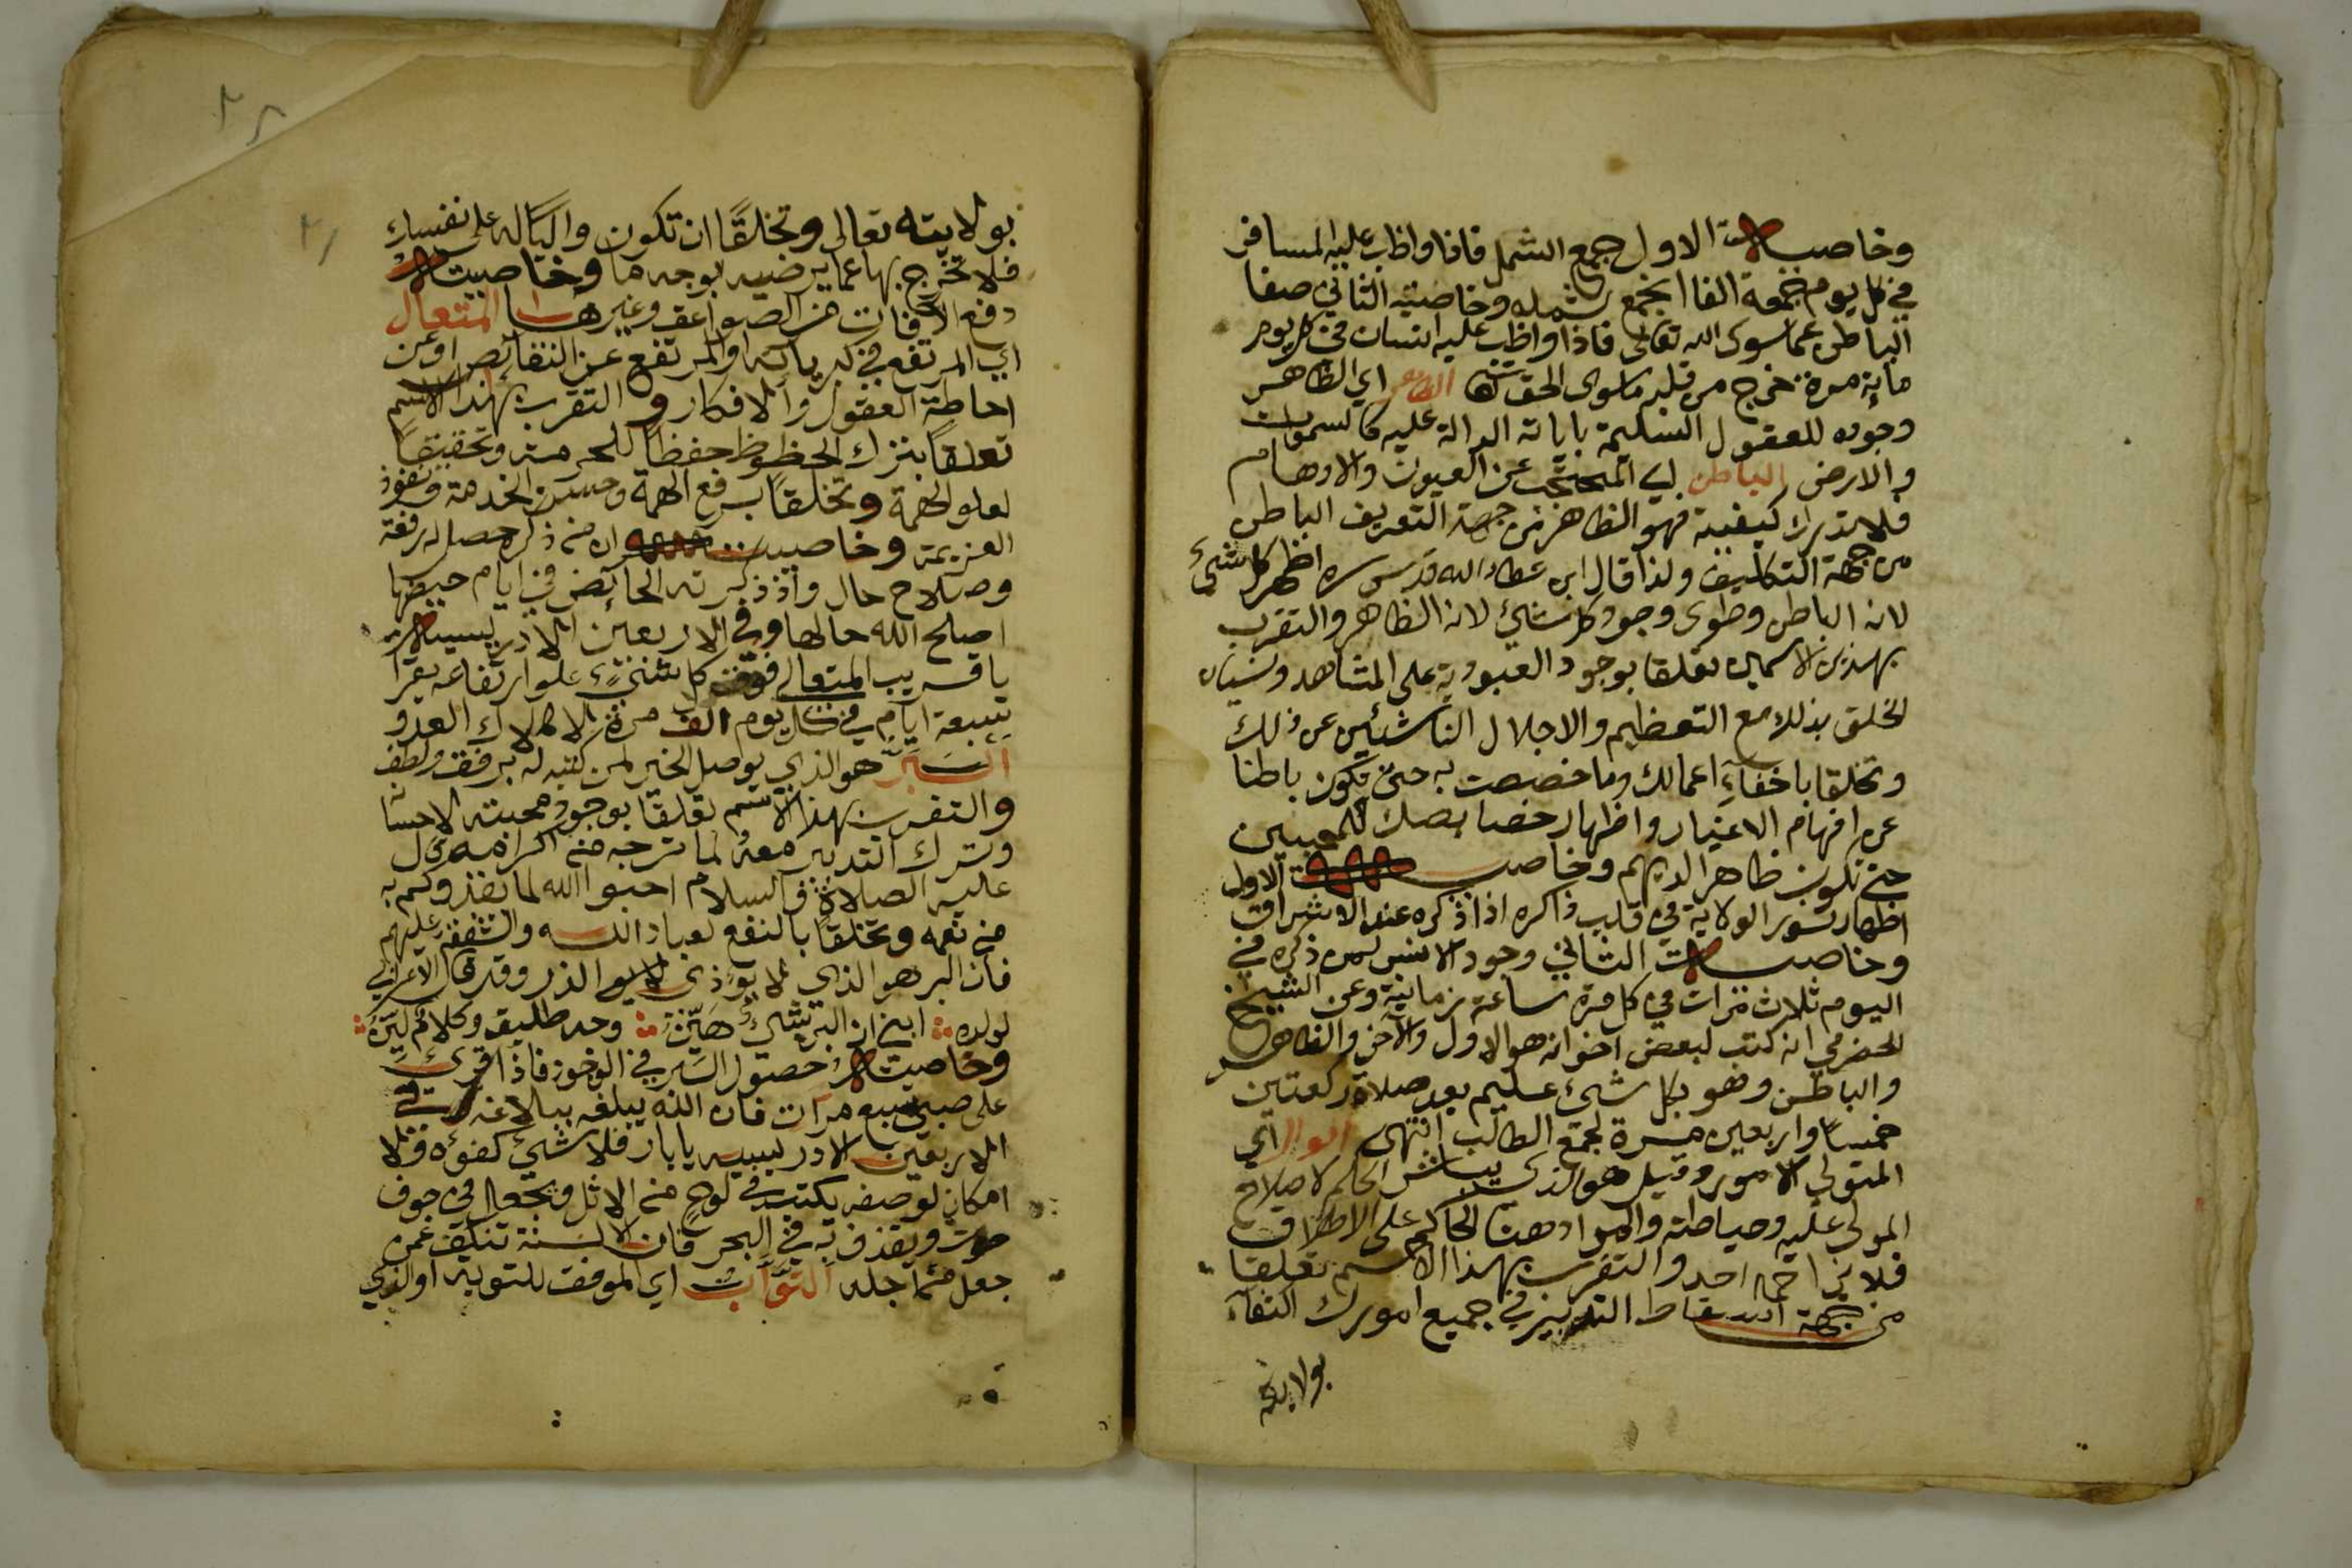 وخاصيت الاول جمع الشمل فاذا واظب عليه المسافر
في كل يوم جمعة الفا انجمع شمله وخاصيته الثاني صفا
الباطن عما سوى الله تعالى فاذا واظب عليه انسان في كل يوم
ماية مرة خرج من قلبه ماسوى الحق الظاهر اي الظاهر
وجوده للعقول السليمة باياته الدالة عليه كالسموات
والارض الباطن اي المحتجب عن العيون والاوهام
فلا تدرك كيفية فهو الظاهر من جهة التعريف الباطن
من جهة التكييف ولذا قال ابن عطاء الله قدس سره اظهر كل شيء
لانه الباطن وطوى وجود كل شيء لانه الظاهر والتقرب
بهذين الاسمين تعلقا بوجود العبودية على المشاهد ونسيان
الخلق بذلك مع التعظيم والاجلال الناشئين عن ذلك
وتخلقا باخفاء اعمالك وما خصصت به حتى تكون باطنا
عن افهام الاغيار واظهار خصايصك للمحبين
حتى تكون ظاهرا لديهم وخاصيت الاول
اظهار نور الولاية في قلب ذاكره اذا ذكره عند الاشراق
وخاصيت الثاني وجود الانس لمن ذكره في
اليوم ثلاث مرات في كل مرة ساعة زمانية وعن الشيخ
الحضرمي انه كتب لبعض اخوانه هو الاول والآخر والظاهر
والباطن وهو بكل شيء عليم بعد صلاة ركعتين
خمسا واربعين مرة لجمع الطالب انتهى الوال اي
المتولي الامور وقيل هو الذي يباشر الحكم لاصلاح
المولى عليه وحياطته والمراد هنا الحاكم على الاطلاق
فلا يزاحمه احد والتقرب بهذا الاسم تعلقا
من جهة اسقاط التدبير في جميع امورك اكتفاء
بولايته
بولايته تعالى وتخلقا ان تكون واليا له على نفسك
فلا تخرج بها عما يرضيه بوجه ما وخاصيته
دفع الآفات من الصواعق وغيرها المتعال
اي المرتفع في كبريائه او المرتفع عن النقائص او عن
احاطة العقول والافكار والتقرب بهذا الاسم
تعلقا بترك الحظوظ حفظا للحرمة وتحقيقا
لعلو الهمة وتخلقا برفع الهمة وحسن الخدمة ونفوذ
العزيمة وخاصيت ان من ذكره حصل له رفعة
وصلاح حال واذ ذكرته الحائض في ايام حيضها
اصلح الله حالها وفي الاربعين الادريسية
يا قريب المتعالي فوق كل شيء علو ارتفاعه يقرأ
سبعة ايام في كل يوم الف مرة لاهلاك العدو
البر هو الذي يوصل الخير لمن كتبه له برفق ولطف
والتقرب بهذا الاسم تعلقا بوجود محبته لاحسا
وترك التدبير معه لما ترجه من اكرامه قال
عليه الصلاة والسلام احبوا الله لما يغذوكم به
من نعمه وتخلقا بالنفع لعباد الله والشفقة عليهم
فان البر هو الذي لا يؤذي ولا الذر وقد قال الاعرابي
لولده ابني ان البر شيء هين وجه طليق وكلام لين
وخاصيته حصول السير في الوخوز فاذا قرئ
على صبي سبع مرات فان الله يبلغه بلاغه وفي
الاربعين الادريسية يا بار فلا شيء كفؤه ولا
امكان لوصفه يكتب في لوح من الاثل ويجعل في جوف
حوت ويقذف به في البحر فان الالسنة تنكف عمن
جعل من اجله التواب اي الموفق للتوبة او الذي